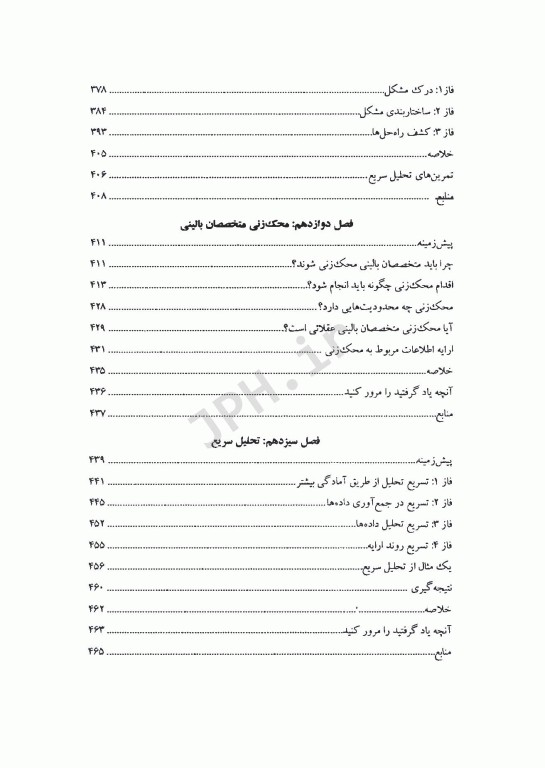 فاز۱: درک مشکل ۳۷۸
فاز ۲: ساختاربندی مشکل ۳۸۴
فاز ۳: کشف راه‌حل‌ها ۳۹۳
خلاصه ۴۰۵
تمرین‌های تحلیل سریع ۴۰۶
منابع ۴۰۸
فصل دوازدهم: محک‌زنی متخصصان بالینی
پیش‌زمینه ۴۱۱
چرا باید متخصصان بالینی محک‌زنی شوند؟ ۴۱۱
اقدام محک‌زنی چگونه باید انجام شود؟ ۴۱۳
محک‌زنی چه محدودیت‌هایی دارد؟ ۴۲۸
آیا محک‌زنی متخصصان بالینی عقلائی است؟ ۴۲۹
ارایه اطلاعات مربوط به محک‌زنی ۴۳۱
خلاصه ۴۳۵
آنچه یاد گرفتید را مرور کنید ۴۳۶
منابع ۴۳۷
JPH.ir
فصل سیزدهم: تحلیل سریع
پیش‌زمینه ۴۳۹
فاز ۱: تسریع تحلیل از طریق آمادگی بیشتر ۴۴۱
فاز ۲: تسریع در جمع‌آوری داده‌ها ۴۴۵
فاز ۳: تسریع تحلیل داده‌ها ۴۵۲
فاز ۴: تسریع روند ارایه ۴۵۵
یک مثال از تحلیل سریع ۴۵۶
نتیجه‌گیری ۴۶۰
خلاصه ۴۶۲
آنچه یاد گرفتید را مرور کنید ۴۶۳
منابع ۴۶۵